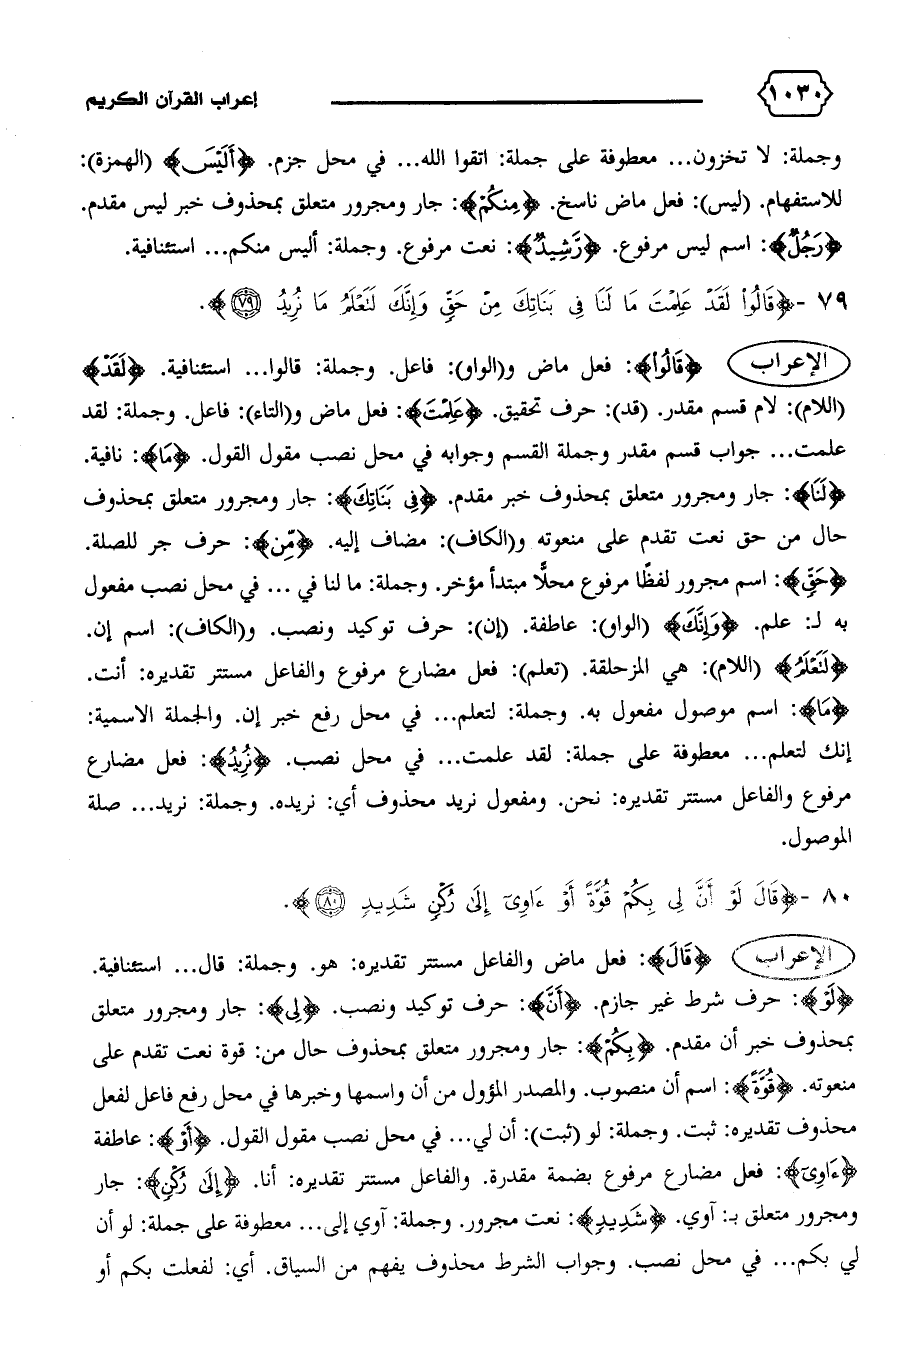 ١٠٣٠ إعراب القرآن الكريم
وجملة: لا تخزون... معطوفة على جملة: اتقوا الله... في محل جزم. ﴿أَلَيْسَ﴾ (الهمزة):
للاستفهام. (ليس): فعل ماض ناسخ. ﴿مِنكُمْ﴾: جار ومجرور متعلق بمحذوف خبر ليس مقدم.
﴿رَجُلٌ﴾: اسم ليس مرفوع. ﴿رَّشِيدٌ﴾: نعت مرفوع. وجملة: أليس منكم... استئنافية.
٧٩ -﴿قَالُواْ لَقَدْ عَلِمْتَ مَا لَنَا فِى بَنَاتِكَ مِنْ حَقٍّ وَإِنَّكَ لَتَعْلَمُ مَا نُرِيدُ ﴿٧٩﴾﴾.
الإعراب ﴿قَالُواْ﴾: فعل ماض و(الواو): فاعل. وجملة: قالوا... استئنافية. ﴿لَقَدْ﴾
(اللام): لام قسم مقدر. (قد): حرف تحقيق. ﴿عَلِمْتَ﴾: فعل ماض و(التاء): فاعل. وجملة: لقد
علمت... جواب قسم مقدر وجملة القسم وجوابه في محل نصب مقول القول. ﴿مَا﴾: نافية.
﴿لَنَا﴾: جار ومجرور متعلق بمحذوف خبر مقدم. ﴿فِى بَنَاتِكَ﴾: جار ومجرور متعلق بمحذوف
حال من حق نعت تقدم على منعوته و(الكاف): مضاف إليه. ﴿مِّن﴾: حرف جر للصلة.
﴿حَقٍّ﴾: اسم مجرور لفظًا مرفوع محلًّا مبتدأ مؤخر. وجملة: ما لنا في ... في محل نصب مفعول
به لـ: علم. ﴿وَإِنَّكَ﴾ (الواو): عاطفة. (إن): حرف توكيد ونصب. و(الكاف): اسم إن.
﴿لَتَعْلَمُ﴾ (اللام): هي المزحلقة. (تعلم): فعل مضارع مرفوع والفاعل مستتر تقديره: أنت.
﴿مَا﴾: اسم موصول مفعول به. وجملة: لتعلم... في محل رفع خبر إن. والجملة الاسمية:
إنك لتعلم... معطوفة على جملة: لقد علمت... في محل نصب. ﴿نُرِيدُ﴾: فعل مضارع
مرفوع والفاعل مستتر تقديره: نحن. ومفعول نريد محذوف أي: نريده. وجملة: نريد... صلة
الموصول.
٨٠ -﴿قَالَ لَوْ أَنَّ لِى بِكُمْ قُوَّةً أَوْ ءَاوِىٓ إِلَىٰ رُكْنٍ شَدِيدٍ ﴿٨٠﴾﴾.
الإعراب ﴿قَالَ﴾: فعل ماض والفاعل مستتر تقديره: هو. وجملة: قال... استئنافية.
﴿لَوْ﴾: حرف شرط غير جازم. ﴿أَنَّ﴾: حرف توكيد ونصب. ﴿لِى﴾: جار ومجرور متعلق
بمحذوف خبر أن مقدم. ﴿بِكُمْ﴾: جار ومجرور متعلق بمحذوف حال من: قوة نعت تقدم على
منعوته. ﴿قُوَّةً﴾: اسم أن منصوب. والمصدر المؤول من أن واسمها وخبرها في محل رفع فاعل لفعل
محذوف تقديره: ثبت. وجملة: لو (ثبت): أن لي... في محل نصب مقول القول. ﴿أَوْ﴾: عاطفة
﴿ءَاوِىٓ﴾: فعل مضارع مرفوع بضمة مقدرة. والفاعل مستتر تقديره: أنا. ﴿إِلَىٰ رُكْنٍ﴾: جار
ومجرور متعلق بـ: آوي. ﴿شَدِيدٍ﴾: نعت مجرور. وجملة: آوي إلى... معطوفة على جملة: لو أن
لي بكم... في محل نصب. وجواب الشرط محذوف يفهم من السياق. أي: لفعلت بكم أو